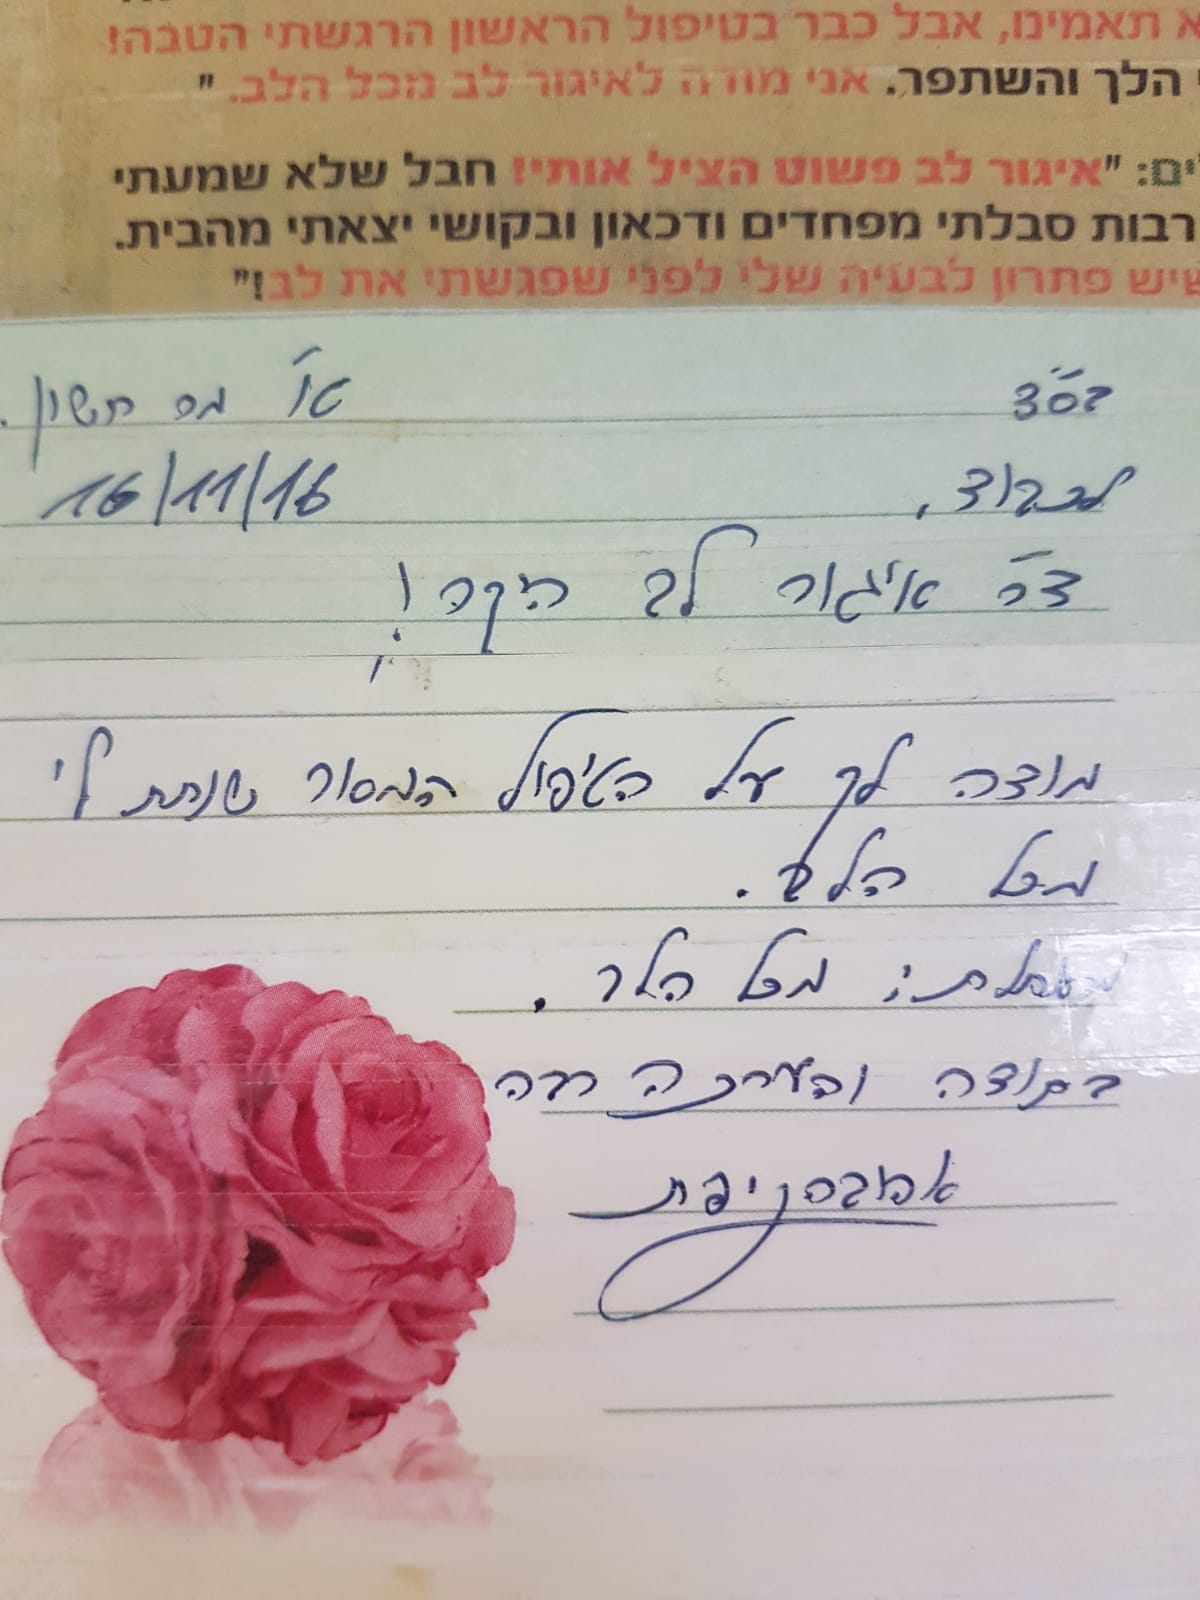 א תאמינו, אבל כבר בטיפול הראשון הרגשתי הטבה!
הלך והשתפר. אני מודה לאיגור לב מכל הלב. "
ים: "איגור לב פשוט הציל אותי! חבל שלא שמעתי
רבות סבלתי מפחדים ודכאון ובקושי יצאתי מהבית.
שיש פתרון לבעיה שלי לפני שפגשתי את לב!"
בס"ד
ט"ו מר חשון.
לכבוד,
16/11/16
ד"ר איגור לב היקר!
מודה לך על הטיפול המסור שנתת לי
מטל הלל.
מטל הלר.
בתודה והערכה רבה